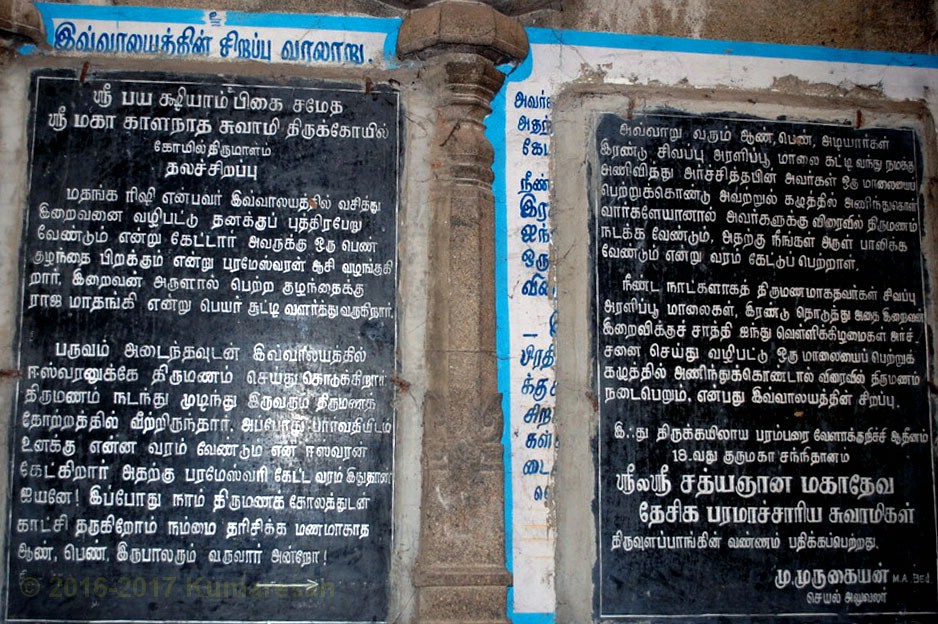 உ
இவ்வாலயத்தின் சிறப்பு வரலாறு.
ஸ்ரீ பய க்ஷயாம் பிகை சமேத
ஸ்ரீ மகா காளநாத சுவாமி திருககோயில்
கோயில்திருமாளம்
தலச்சிறப்பு
மதங்க ரிஷி என்பவர் இவ்வாலயத்தில் வசித்து
இறைவனை வழிபட்டு தனக்குப் புத்திரபேறு
வேண்டும் என்று கேட்டார் அவருக்கு ஒரு பெண்
குழந்தை பிறக்கும் என்று பரமேஸ்வரன் ஆசி வழங்குகி
றார். இறைவன் அருளால் பெற்ற குழந்தைக்கு
ராஜ மாதங்கி என்று பெயர் சூட்டி வளர்த்து வருகிறார்.
பருவம் அடைந்தவுடன் இவ்வாலயத்தில்
ஈஸ்வரனுக்கே திருமணம் செய்து கொடுக்கிறார்
திருமணம் நடந்து முடிந்து இருவரும் திருமணத்
தோற்றத்தில் வீற்றிருந்தார். அப்போது பார்வதியிடம்
உனக்கு என்ன வரம் வேண்டும் என ஈஸ்வரன்
கேட்கிறார் அதற்கு பரமேஸ்வரி கேட்ட வரம் இதுதான்
ஐயனே! இப்போது நாம் திருமணக் கோலத்துடன்
காட்சி தருகிறோம் நம்மை தரிசிக்க மணமாகாத
ஆண், பெண், இருபாலரும் வருவார் அன்றோ!
அவர்
அதற்
கேட
நீண்
இர
ஐந்
ஒரு
வில
பிரதி
க்கு
சிற
கள்
டை
அவ்வாறு வரும் ஆண், பெண், அடியார்கள்
இரண்டு சிவப்பு அரளிப்பூ மாலை கட்டி வந்து நமக்கு
அணிவித்து அர்ச்சித்தபின் அவர்கள் ஒரு மாலையைப்
பெற்றுக்கொண்டு அவற்றுல் கழுத்தில் அணிந்துகொள்
வார்களேயானால் அவர்களுக்கு விரைவில் திருமணம்
நடக்க வேண்டும், அதற்கு நீங்கள் அருள் பாலிக்க
வேண்டும் என்று வரம் கேட்டுப் பெற்றாள்.
நீண்ட நாட்களாகத் திருமணமாகதவர்கள் சிவப்பு
அரளிப்பூ மாலைகள், இரண்டு தொடுத்து அதை இறைவன்
இறைவிக்குச் சாத்தி ஐந்து வெள்ளிக்கிழமைகள் அர்ச்
சனை செய்து வழிபட்டு ஒரு மாலையைப் பெற்றுக்
கழுத்தில் அணிந்துக்கொண்டால் விரைவில் திருமணம்
நடைபெறும், என்பது இவ்வாலயத்தின் சிறப்பு.
இஃது திருக்கயிலாய பரம்பரை வேளாக்குறிச்சி ஆதீனம்
18.வது குருமகா சந்நிதானம்
ஸ்ரீலஸ்ரீ சத்யஞான மகாதேவ
தேசிக பரமாச்சாரிய சுவாமிகள்
திருவுளப்பாங்கின் வண்ணம் பதிக்கப்பெற்றது.
மு.முருகையன் M.A. B.ed.
செயல் அலுவலர்
© 2016-2017 Kumaresan